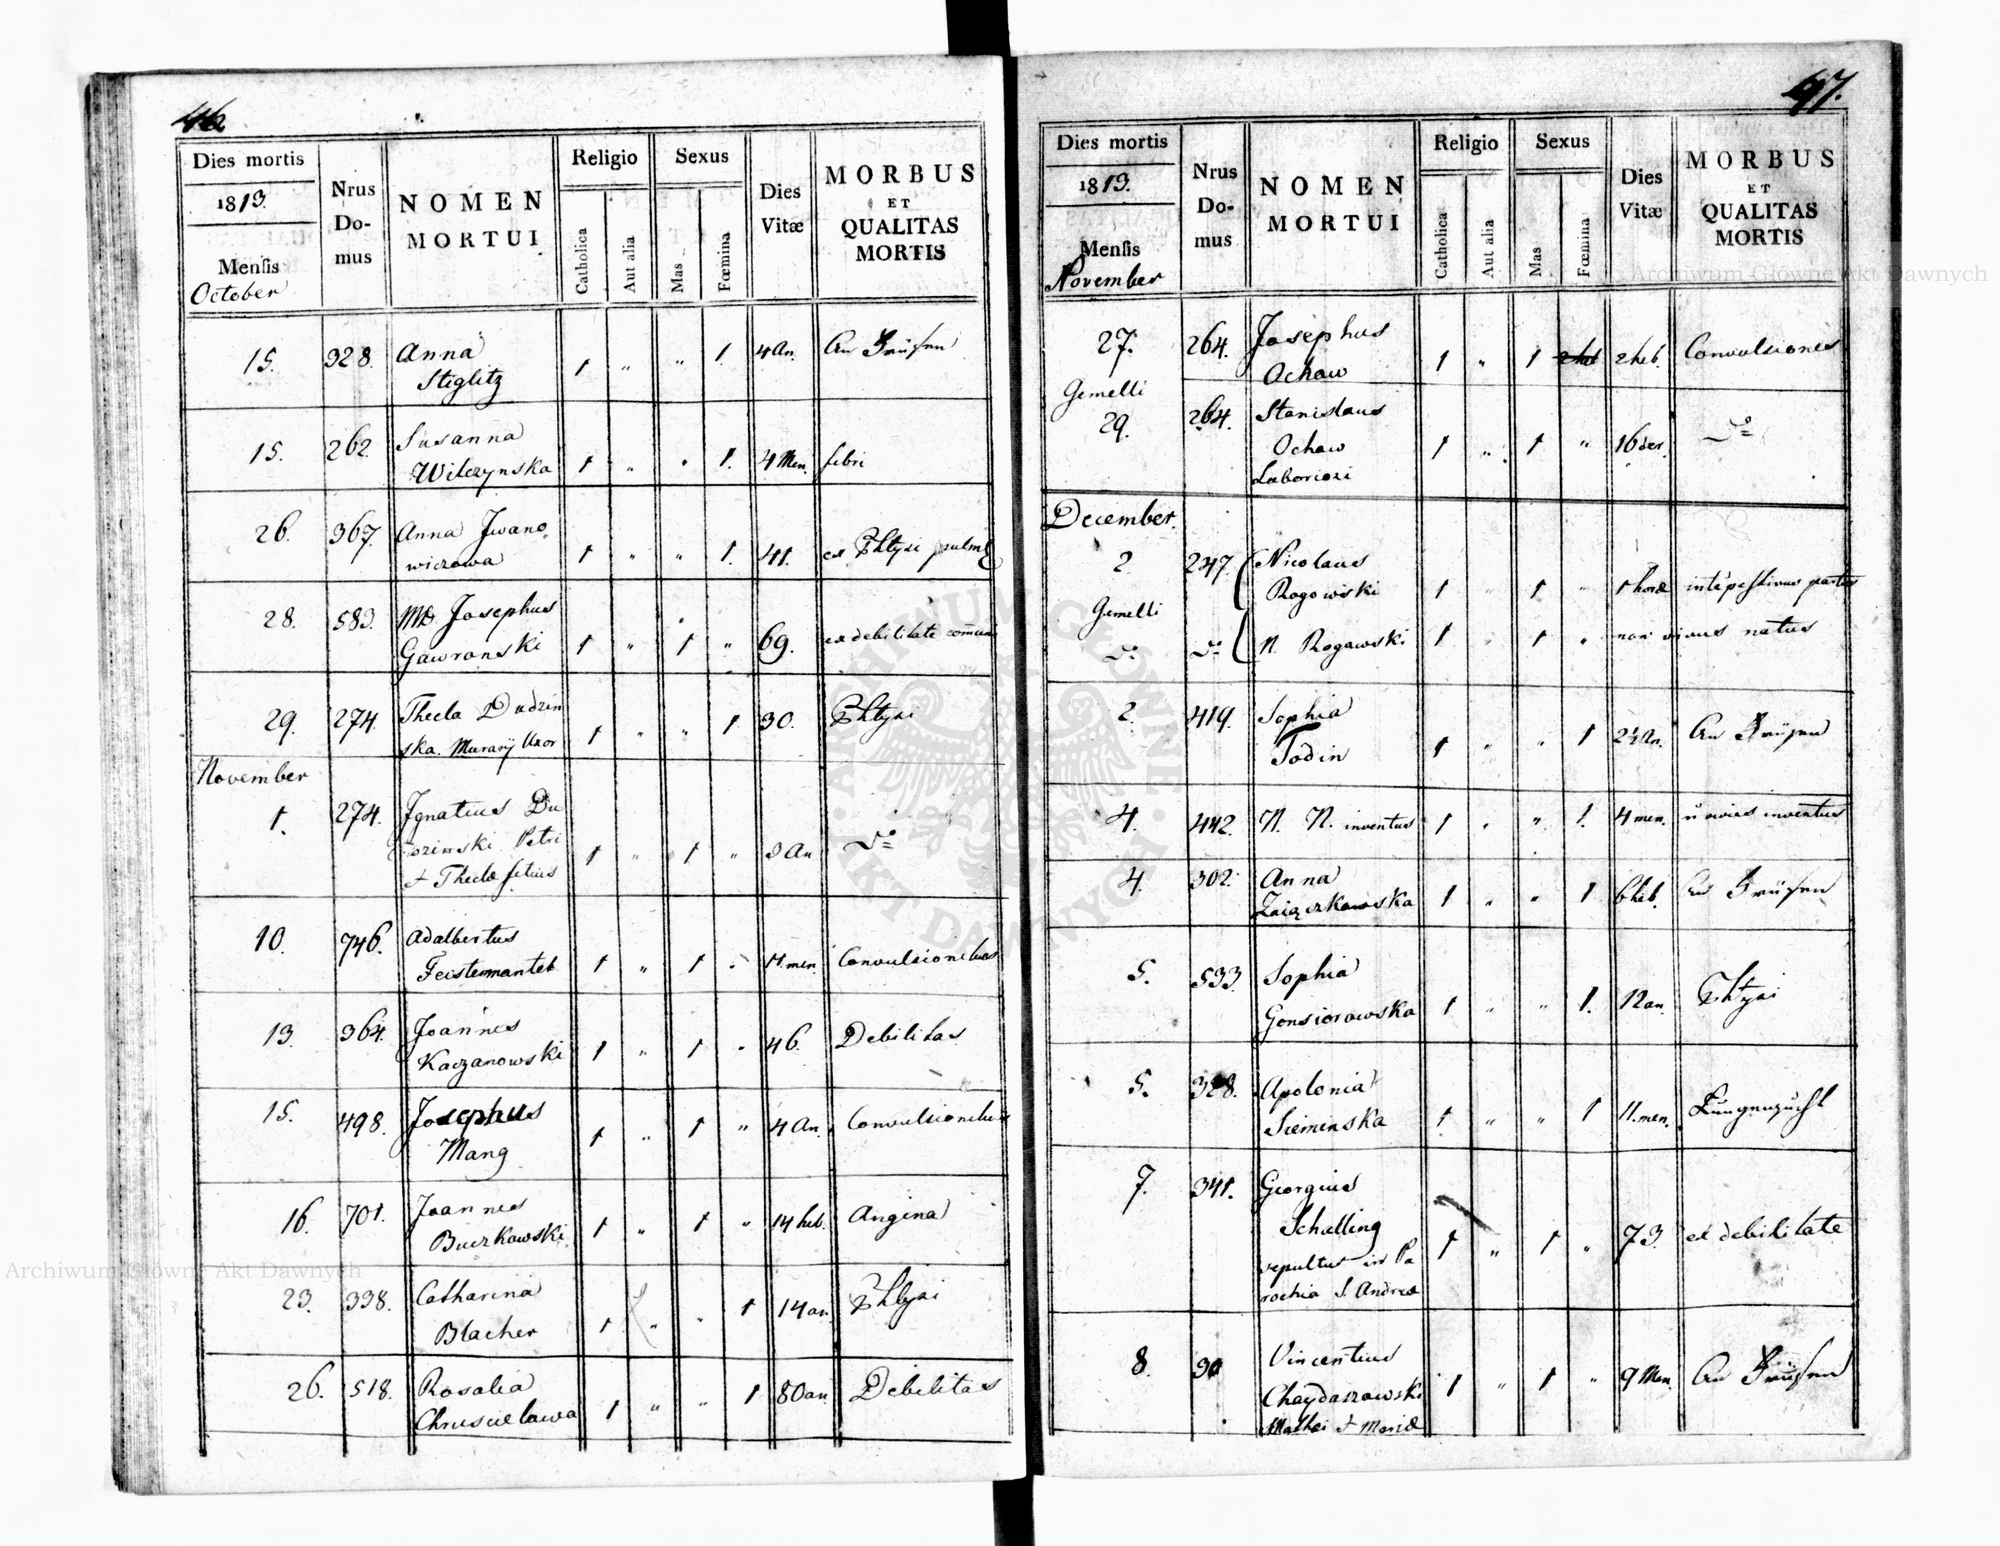 46
Dies mortis
1813.
Mensis
October
Nrus
Do-
mus
NOMEN
MORTUI
Religio
Catholica
Aut alia
Sexus
Mas
Fœmina
Dies
Vitæ
MORBUS
ET
QUALITAS
MORTIS
15. 328. Anna 1 " " 1. 4 An.
Stiglitz
15. 262. Susanna
Wilczynska 1 " " 1. 4 Men. febri
26. 367. Anna Jwano
wiczowa 1 " " 1. 41. ex Phtysi pulm
28. 583. Josephus
Gawronski 1 " 1 " 69. ex debilitate
29. 274. Thecla Dudzin
ska. Murarÿ Uxor 1 " " 1 30. Phtysi
November
1. 274. Jgnatius Du
dzinski Petri
+ Theclæ filius 1 " 1 " 3 An Do
10. 746. Adalbertus
Feistemantel 1 " 1 " 11. men. Convulsionibus
13. 364. Joannes
Kaczanowski 1 " 1 " 46. Debilitas
15. 498. Josephus
Mang 1 " 1 " 4 An. Convulsionibus
16. 701. Joannes
Buczkowski 1 " 1 " 14 heb. Angina
23. 338. Catharina
Blacher 1 " " 1 14 an. Phtysi
26. 518. Rosalia
Chruscielowa 1 " " 1 80 an Debilitas
47.
Dies mortis
1813.
Mensis
November
Nrus
Do-
mus
NOMEN
MORTUI
Religio
Catholica
Aut alia
Sexus
Mas
Fœmina
Dies
Vitæ
MORBUS
ET
QUALITAS
MORTIS
27. 264. Josephus
Ochaw 1 " 1 2 heb. Convulsiones
Gemelli
29. 264. Stanislaus
Ochaw 1 " 1 " 16 der. Do
Laboriosi
December.
2 247. Nicolaus
Rogowski 1 " 1 " 1 horæ partus
Gemelli
Do Do N. Rogawski 1 " 1 " non vivus natus
2. 419. Sophia
Todin 1 " " 1 2½ An.
4. 442. N. N. inventus 1 " " 1. 4 men. inventus
4. 302. Anna
Zaiączkowska 1 " " 1 6 heb.
5. 533. Sophia
Gonsiorowska 1 " " 1. 12 an. Phtysi
5. 328. Apolonia
Sieminska 1 " " 1 11. men. Lungensucht
7. 341. Georgius
Schelling 1 " 1 " 73. ex debilitate
sepultus in Pa
rochia S. Andreæ
8. 30 Vincentius
Chaydaszowski 1 " 1 " 9 Men.
Mathei + Mariæ
ARCHIWUM GŁÓWNE AKT DAWNYCH
Archiwum Główne Akt Dawnych
Archiwum Główne Akt Dawnych